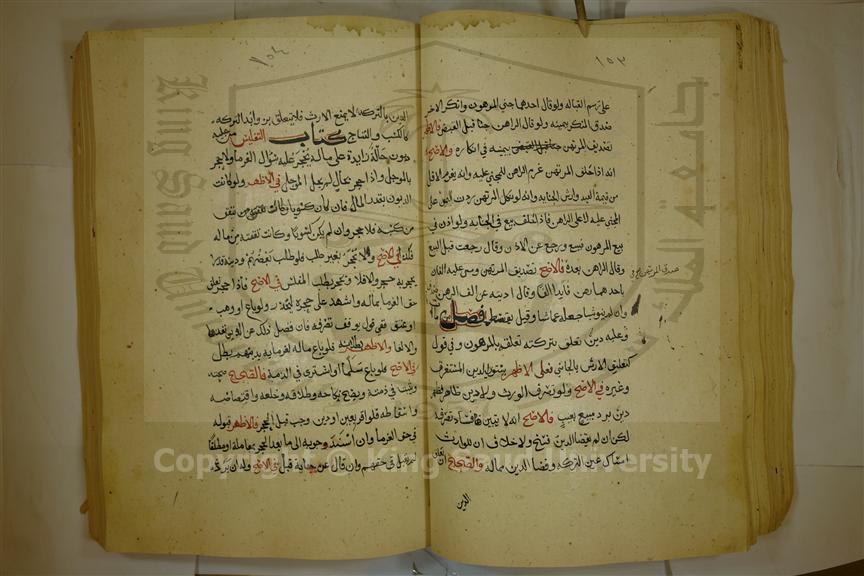 ١٥٣
على رسم القباله ولو قال احدهما جنى المرهون وانكر الاخر
صدق المنكر بيمينه ولو قال الراهن جنا قبل القبض فالاظهر
تصديق المرتهن بيمينه في انكاره والاصح
انه اذا حلف المرتهن غرم الراهن للمجني عليه وانه يغرم الاقل
من قيمة العبد وارش الجنايه وانه لو نكل المرتهن ردت اليمين على
المجني عليه لا على الراهن فاذا حلف بيع في الجنايه ولو اذن في
بيع المرهون فبيع ورجع عن الاذن وقال رجعت قبل البيع
وقال الراهن بعده فالاصح تصديق المرتهن ومن عليه الفان
باحدهما رهن فادا الفا وقال اديته عن الف الرهن
وان لم ينو شيا جعله عما شا وقيل يقسط فصل
وعليه دين تعلق بتركته تعلقه بالمرهون وفي قول
كتعلق الارش بالجاني فعلى الاظهر يستوي الدين المستغرق
وغيره في الاصح ولو تصرف الوارث ولا دين ظاهر فظهر
دين برد مبيع بعيب فالاصح انه لا يتبين فساد تصرفه
لكن ان لم يقض الدين فسخ ولا خلاف ان للوارث
امساك عين التركه وقضا الدين من ماله والصحيح ان تعلق
الدين
صدق المرتهن
١٥٤
الدين بالتركه لا يمنع الارث فلا يتعلق بزوايد التركه
كالكسب والنتاج كتاب التفليس من عليه
ديون حالّة زايدة على ماله يحجر عليه بسؤال الغرما ولا حجر
بالموجل واذا حجر بحال لم يحل الموجل في الاظهر ولو كانت
الديون بقدر المال فان كان كسوبا ينفق
من كسبه فلا حجر وان لم يكن كسوبا وكانت نفقته من ماله
فكذا في الاصح ولا يحجر بغير طلب فلو طلب بعضهم ودينه قدر
يحجر به حجر والا فلا ويحجر بطلب المفلس في الاصح فاذا حجر تعلق
حق الغرما بماله واشهد على حجره ليحذر ولو باع او وهب
او اعتق ففي قول يوقف تصرفه فان فضل ذلك عن الدين نفذ
والا لغا والاظهر بطلانه فلو باع ماله لغرمايه بدينهم بطل
في الاصح فلو باع سلما او اشترى في الذمة فالصحيح صحته
ويثبت في ذمته ويصح نكاحه وطلاقه وخلعه واقتصاصه
واسقاطه فلو اقر بعين او دين وجب قبل الحجر فالاظهر قبوله
في حق الغرما وان اسند وجوبه الى ما بعد الحجر بمعاملة او مطلقا
لم يقبل في حقهم وان قال عن جناية قبل في الاصح وله ان يرد
جامعة الملك سعود
King Saud University
Copyright © King Saud University